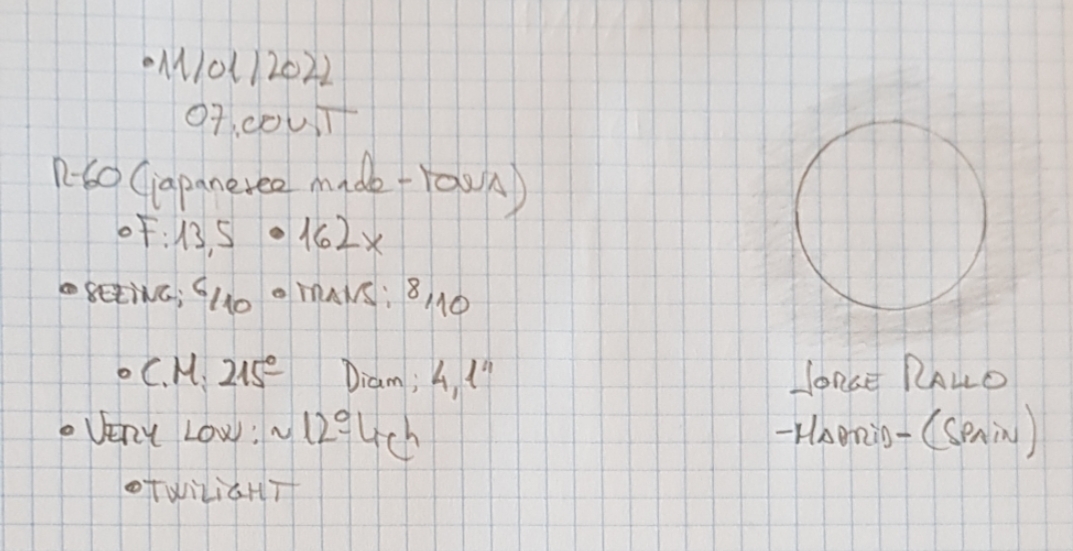 •11/01/2022
07:00U.T
R-60 (japanesee made-
•F:13,5 •162x
•SEEING: 6/10 •TRANS: 8/10
•C.M: 215º Diam: 4,1"
•VERY LOW: ~12º
•TWILIGHT
JORGE RALLO
-MADRID-(SPAIN)